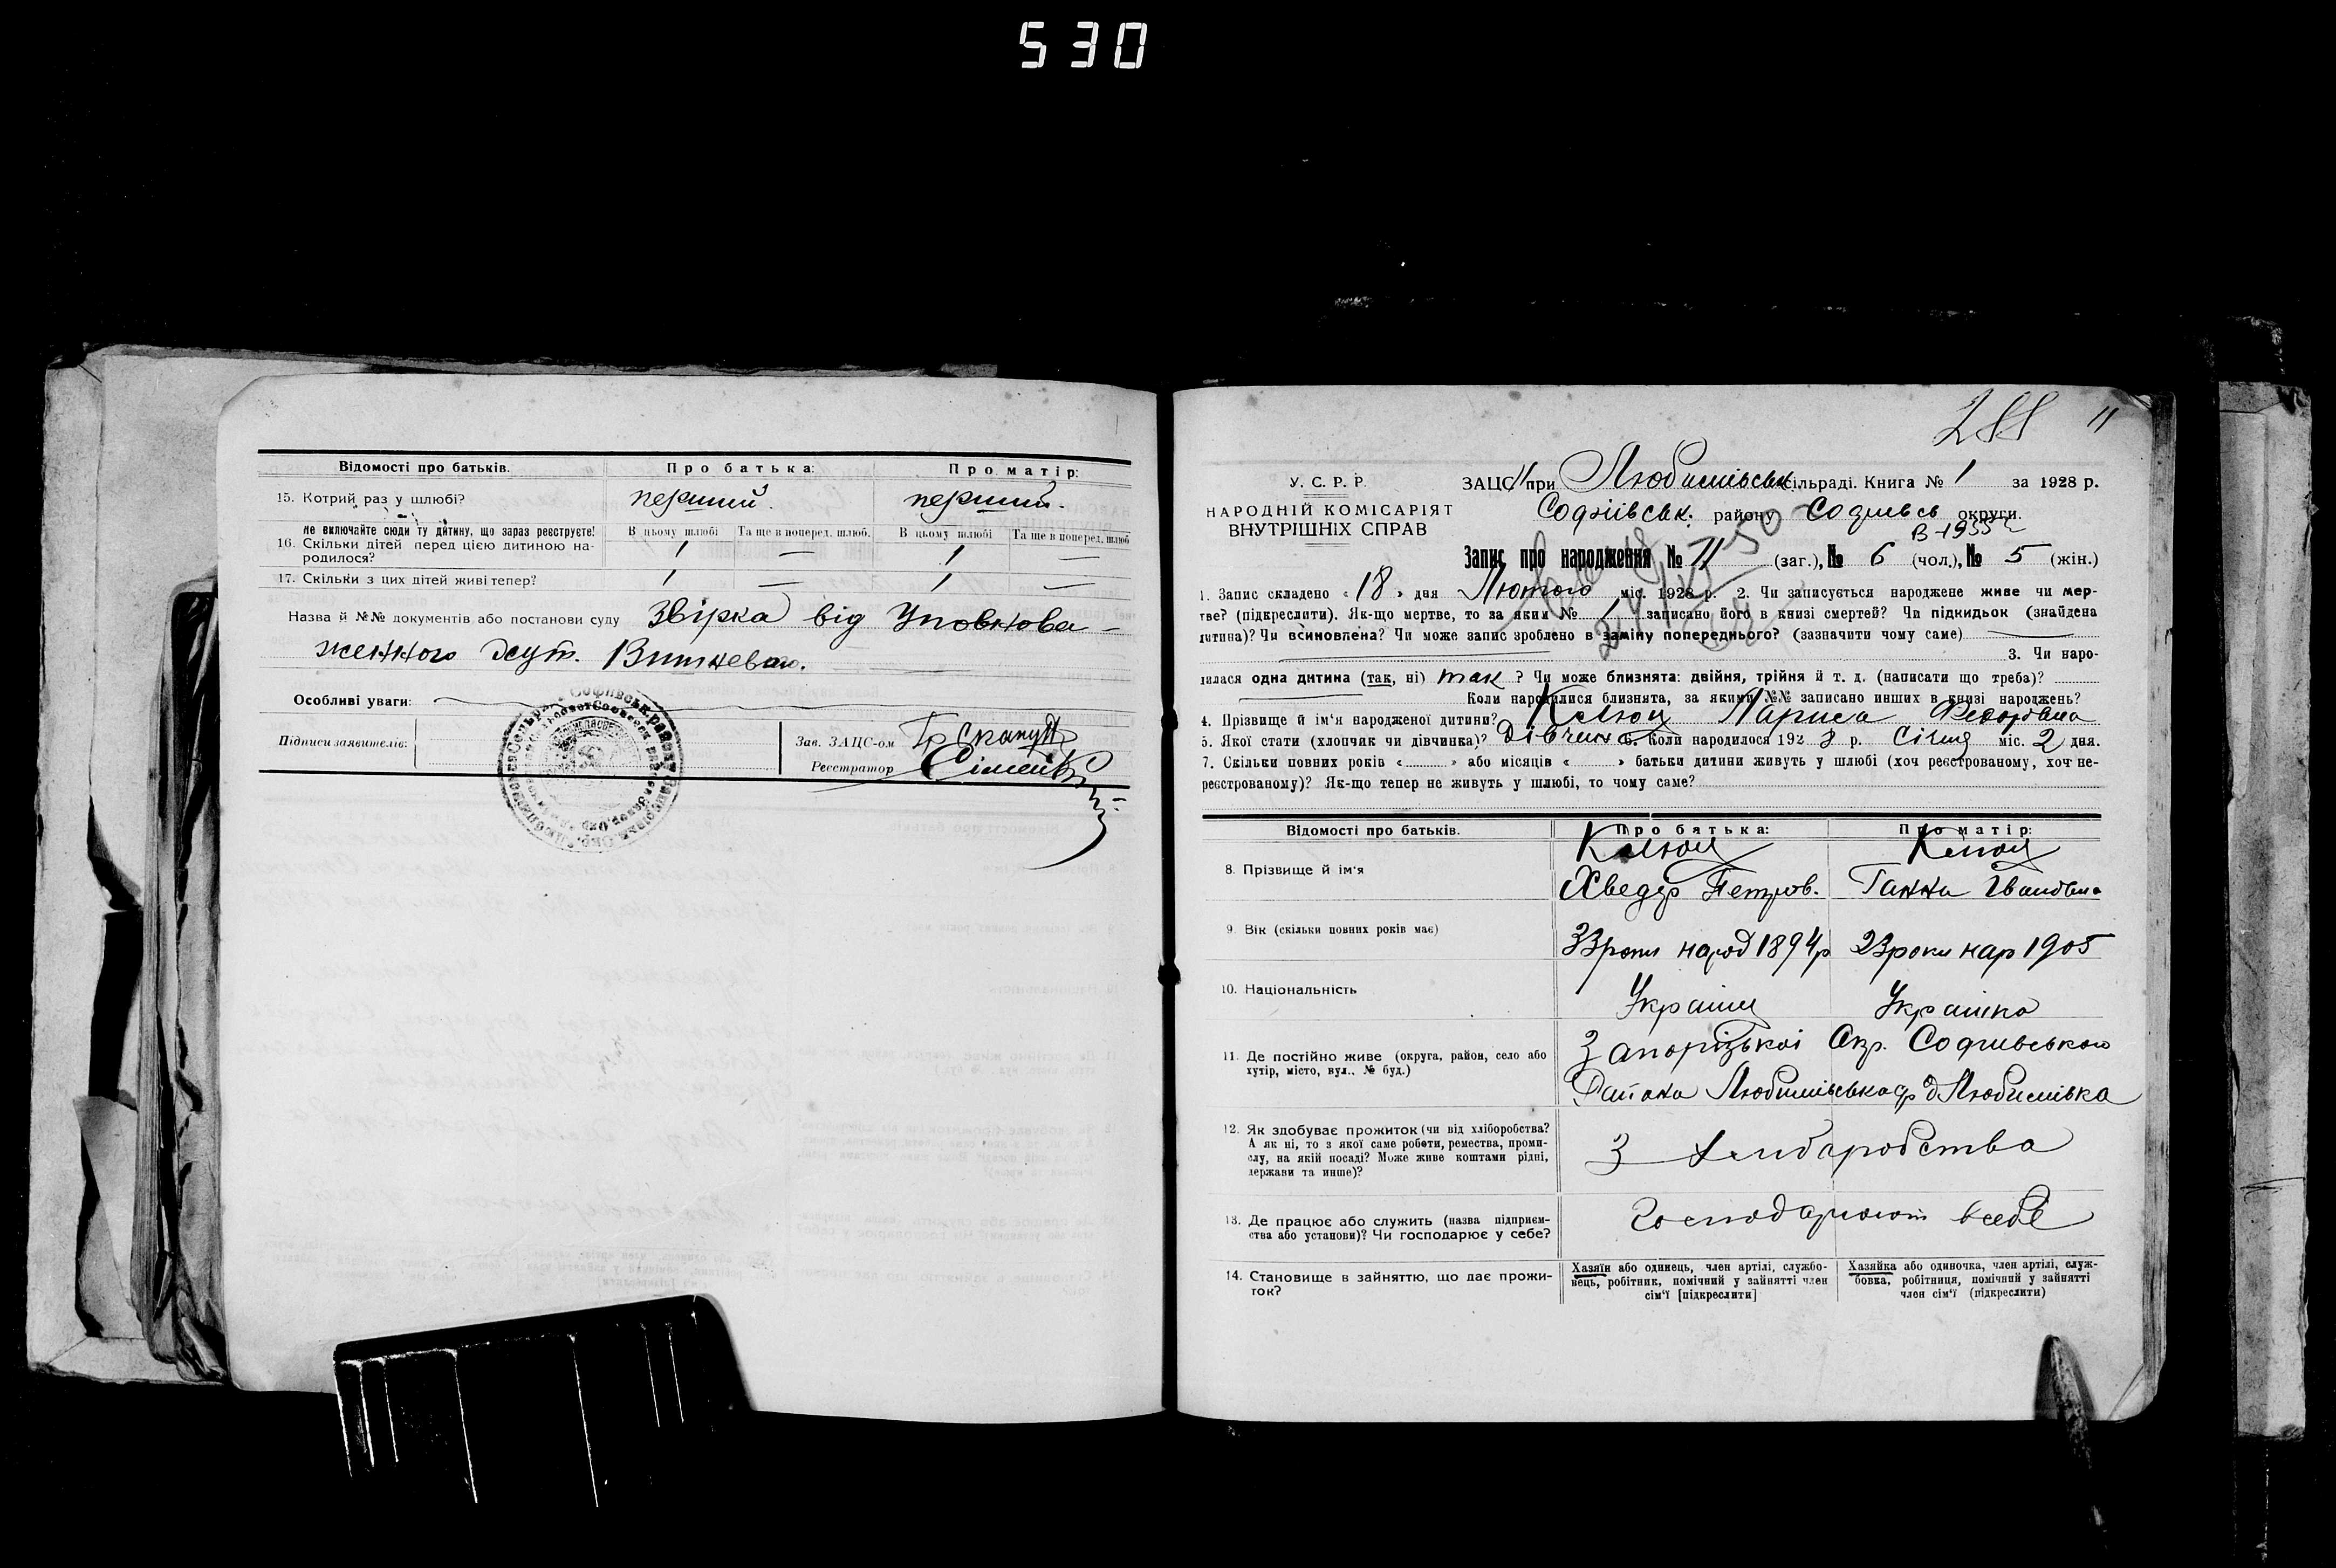 530
Відомості про батьків. Про батька: Про матір:
15. Котрий раз у шлюбі? перший. перший.
Не включайте сюди ту дитину, що зараз реєструєте! В цьому шлюбі Та ще в поперед. шлюб. В цьому шлюбі Та ще в поперед. шлюб
16. Скільки дітей перед цією дитиною на- 1 — 1 —
родилося?
17. Скільки з цих дітей живі тепер? 1 — 1 —
Назва й №№ документів або постанови суду Звірка від Уповнова-
женного
Особливі уваги:
Підписи заявителів: Зав. ЗАЦС-ом
Реєстратор
288 11
У. С. Р. Р.
НАРОДНІЙ КОМІСАРІЯТ
ВНУТРІШНІХ СПРАВ
ЗАЦС при Любимівськ. сільраді. Книга № 1 за 1928 р.
Софіївськ. району округи.
Запис про народження № 11 (заг.), № 6 (чол.), № 5 (жін.)
1. Запис складено «18» дня Лютого міс. 1928 р. 2. Чи записується народжене живе чи мер-
тве? (підкреслити). Як-що мертве, то за яким № записано його в книзі смертей? Чи підкидьок (знайдена
дитина)? Чи всиновлена? Чи може запис зроблено в заміну попереднього? (зазначити чому саме)
3. Чи наро-
дилася одна дитина (так, ні) так ? Чи може близнята: двійня, трійня й т. д. (написати що треба)?
Коли народилися близнята, за якими №№ записано инших в книзі народжень?
4. Прізвище й ім'я народженої дитини? Лариса Федоровна
5. Якої стати (хлопчяк чи дівчинка)? Дівчина 6. Коли народилося 1928 р. Січня міс. 2 дня.
7. Скільки повних років « » або місяців « » батьки дитини живуть у шлюбі (хоч реєстрованому, хоч не-
реєстрованому)? Як-що тепер не живуть у шлюбі, то чому саме?
Відомості про батьків. Про батька: Про матір:
8. Прізвище й ім'я
Хведір Петров. Ганна Івановна
9. Вік (скільки повних років має) 33 роки народ 1894 р 23 роки нар 1905
10. Національність Україн. Українка
11. Де постійно живе (округа, район, село або Запорізької Окр. Софиевського
хутір, місто, вул., № буд.) Района Любимівська Любимівка
12. Як здобуває прожиток (чи від хліборобства?
А як ні, то з якої саме роботи, ремества, проми-
слу, на якій посаді? Може живе коштами рідні,
держави та инше)? З хлибаробства
13. Де працює або служить (назва підприєм-
ства або установи)? Чи господарює у себе? Господарюют всебе
14. Становище в зайняттю, що дає прожи-
ток?
Хазяїн або одинець, член артілі, службо-
вець, робітник, помічний у зайнятті член
сім'ї [підкреслити]
Хазяйка або одиночка, член артілі, служ-
бовка, робітниця, помічний у зайнятті
член сім'ї (підкреслити)